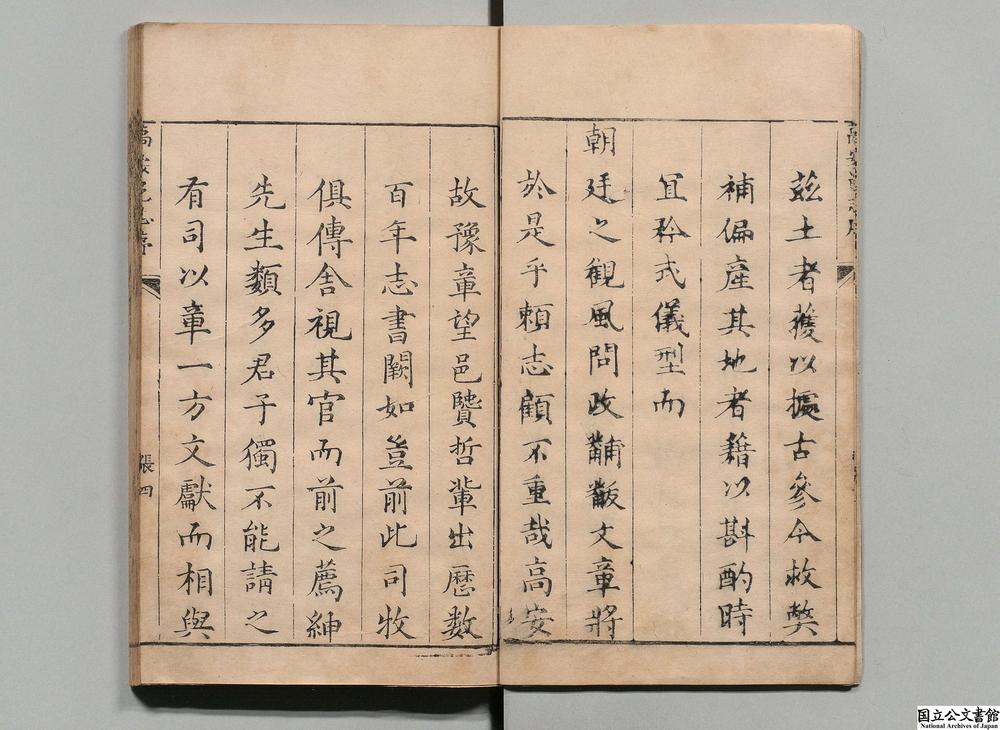 茲土者獲以據古參今救獘
補偏產其地者籍以斟酌時
宜矜式儀型而
朝廷之觀風問政黼黻文章將
於是乎頼志顧不重哉高安
故豫章望邑賢哲輩出歷數
百年志書闕如豈前此司牧
俱傳舍視其官而前之薦紳
先生類多君子獨不能請之
有司以章一方文獻而相與
張四
国立公文書館
National Archives of Japan